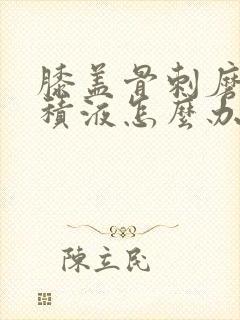 膝盖骨刺磨
積液怎麼办
陳立民